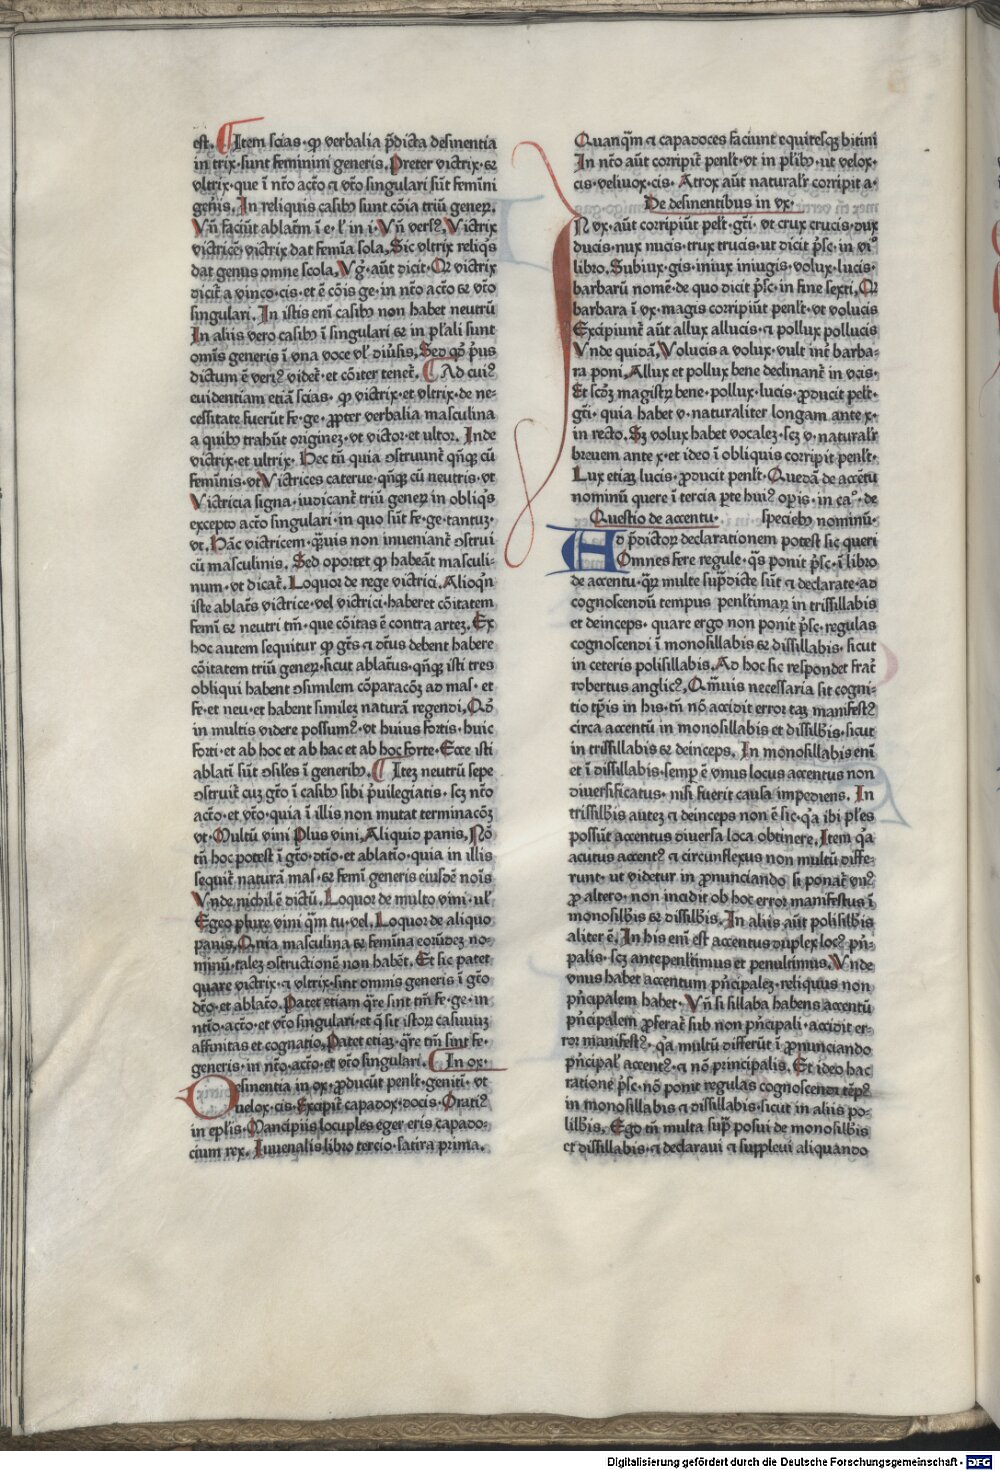 est. Item scias. ꝙ verbalia p̃dicta desinentia
in trix. sunt feminini generis. Preter victrix. ꝛ
vltrix. que ĩ nt̃o act̃o ⁊ vt̃o singulari sũt femĩni
geñis. In reliquis casibꝰ sunt cõia triũ geneꝝ.
Vñ faciũt ablatm̃ ĩ e. l' in i. Vñ versꝰ. Victrix
victricẽ. victrix dat femĩa sola. Sic vltrix reliq̃s
dat genus omne scola. Vg̃. aũt dicit. Qꝛ victrix
dicit̃ a vinco. cis. et ẽ cõis ge. in nt̃o act̃o ꝛ vt̃o
singulari. In istis eni᷒ casibꝰ non habet neutrũ
In aliis vero casibꝰ ĩ singulari ꝛ in pl'ali sunt
omĩs generis ĩ vna voce vl' diũsis. Sed qđ p̃us
dictum ẽ veriꝰ videt̃. et cõiter tenet̃. Ad cuiꝰ
euidentiam etiã scias. ꝙ victrix. et vltrix. de ne-
cessitate fuerũt fe. ge. ꝓpter verbalia masculina
a quibꝰ trahũt originez. vt victor. et ultor. Inde
victrix. et ultrix. Hec tñ quia ꝯstruunt̃ qñqꝫ cũ
femĩnis. vt Victrices caterue. qñqꝫ cũ neutris. vt
Victricia signa. iudicant̃ triũ geneꝝ in obliq̃s
excepto act̃o singulari. in quo sũt fe. ge. tantuz.
vt. Hãc victricem. q̃uis non inueniant̃ ꝯstrui
cũ masculinis. Sed oportet ꝙ habeãt masculi-
num. vt dicat̃. Loquor de rege victrici. Alioqn̄
iste ablat̃s victrice. vel victrici. haberet cõitatem
femĩ ꝛ neutri tm̃. que cõitas ẽ contra artez. Ex
hoc autem sequitur ꝙ gt̃s ⁊ dt̃us debent habere
cõitatem triũ geneꝝ. sicut ablat̃us. qñqꝫ isti tres
obliqui habent ꝯsimilem cõparacõꝫ ad mas. et
fe. et neu. et habent similez naturã regendi. Qđ
in multis videre possumꝰ. vt huius fortis. huic
forti. et ab hoc et ab hac et ab hoc forte. Ecce isti
ablati᷒ sũt ꝯsil̃es ĩ generibꝰ. Itez neutrũ sepe
ꝯstruit̃ cuz gt̃o ĩ casibꝰ sibi p̃uilegiatis. scꝫ nt̃o
act̃o. et vt̃o. quia ĩ illis non mutat terminacõꝫ
vt. Multũ vini Plus vini. Aliquid panis. Nõ
tñ hoc potest ĩ gt̃o. dt̃io. et ablatio. quia in illis
sequit̃ naturã mas. ꝛ femĩ generis eiusdẽ noĩs
Vnde nichil ẽ dictũ. Loquor de multo vini. ul'
Egeo plure vini q̃m tu. vel. Loquor de aliquo
panis. Qnia masculina ꝛ femĩna eorũdez no-
minũ. talez ꝯstructionẽ non habẽt. Et sic patet
quare victrix. ⁊ vltrix. sint omnis generis ĩ gt̃o
dt̃o. et ablat̃o. Patet etiam q̃re sint tm̃ fe. ge. in
nt̃io. act̃o. et vt̃o singulari. et q̃ sit istoꝝ casuuꝫ
affinitas et cognatio. Patet etiaꝫ. q̃re tm̃ sint fe.
generis. in nt̃o. act̃o. et vt̃o singulari. In ox.
Desinentia in ox. ꝓducũt penlt̃. geniti᷒. vt
velox. cis. Excipit̃ capadox. docis. Oratiꝰ
in ep̃lis. Mancipiis locuples eger eris capado-
cium rex. Iuuenalis libro tercio. satira prima.
Quanqm̃ ⁊ capadoces faciunt equitesqꝫ bitini
In nt̃o aũt corripit̃ penlt̃. vt in pl̃ibꝰ. ut velox.
cis. veliuox. cis. Atrox aũt natural'r corripit a.
De desinentibus in vx.
IN vx. aũt corripiũt pelt̃. gti᷒. vt crux crucis. dux
ducis. nux nucis. trux trucis. ut dicit p̃sc. in viͦ
libro. Subiux. gis. iniux iniugis. volux. lucis.
barbarũ nomẽ. de quo dicit p̃sc. in fine sexti. Qꝛ
barbara ĩ vx. magis corripiũt penlt̃. vt volucis
Excipiunt̃ aũt allux allucis. ⁊ pollux pollucis
Vnde quidã. Volucis a volux. vult int̃ barba-
ra poni. Allux et pollux bene declinant̃ in vcis.
Et scđꝫ magistꝝ bene. pollux. lucis. ꝓducit pelt̃.
gti᷒. quia habet v. naturaliter longam ante x.
in recto. Sꝫ volux habet vocalez. scꝫ v. natural'r
breuem ante x. et ideo ĩ obliquis corripit penlt̃.
Lux etiaꝫ lucis. ꝓducit penlt̃. Quedã de accẽtu
nominũ quere ĩ tercia p̱te huiꝰ op̱is. in caͦ. de
Questio de accentu. speciebꝰ nominũ.
Ad p̃dictoꝝ declarationem potest sic queri
Omnes fere regule. q̃s ponit p̃sc. ĩ libro
de accentu. q̃ꝫ multe sup̃dicte sũt ⁊ declarate. ad
cognoscendũ tempus penlt̃imaꝝ in trissillabis
et deinceps. quare ergo non ponit p̃sc. regulas
cognoscendi ĩ monosillabis ꝛ dissillabis. sicut
in ceteris polisillabis. Ad hoc sic respondet frat̃
robertus anglicꝰ. Qm̃uis necessaria sit cogni-
tio tp̱is in his. tñ nõ accidit error taꝫ manifestꝰ
circa accentũ in monosillabis et dissillb̃is. sicut
in trissillabis ꝛ deinceps. In monosillabis eni᷒
et ĩ dissillabis. semp̱ ẽ vnus locus accentus non
diuersificatus. nisi fuerit causa impediens. In
trissillb̃is autez ⁊ deinceps non ẽ sic. q̃a ibi pl̃es
possũt accentus diuersa loca obtinere. Item q̃a
acutus accentꝰ ⁊ circunflexus non multũ diffe-
runt. ut videtur in ꝓnunciando si ponat̃ vnꝰ
ꝓ altero. non incidit ob hoc error manifestus ĩ
monosillb̃is ꝛ dissillb̃is. In aliis aũt polisillb̃is
aliter ẽ. In his eni᷒ est accentus duplex locꝰ pñ-
palis. scꝫ antepenlt̃imus et penultimus. Vnde
vnus habet accentum pñcipalez. reliquus non
pñcipalem habet. Vñ si sillaba habens accentũ
pñcipalem ꝓferat̃ sub non pñcipali. accidit er-
ror manifestꝰ. q̃a multũ differũt ĩ ꝓnunciando
pñcipal' accentꝰ. ⁊ nõ principalis. Et ideo hac
ratione p̃sc. nõ ponit regulas cognoscendi tẽpꝰ
in monosillabis ⁊ dissillabis. sicut in aliis po-
lillb̃is. Ego tñ multa sup̃ posui de monosillb̃is
et dissillabis. ⁊ declaraui ⁊ suppleui aliquando
Digitalisierung gefördert durch die Deutsche Forschungsgemeinschaft - DFG